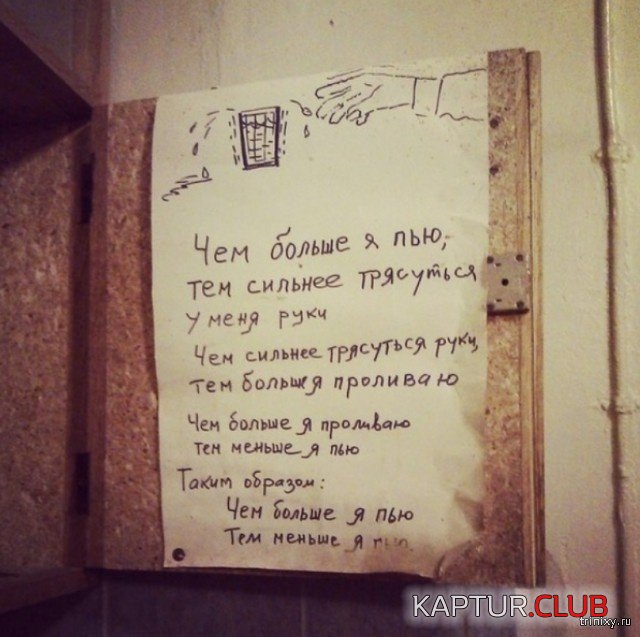 Чем больше я пью,
тем сильнее трясуться
у меня руки
Чем сильнее трясуться руки,
тем больше я проливаю
Чем больше я проливаю
тем меньше я пью
Таким образом:
Чем больше я пью
Тем меньше я
KAPTUR.CLUB
trinixy.ru